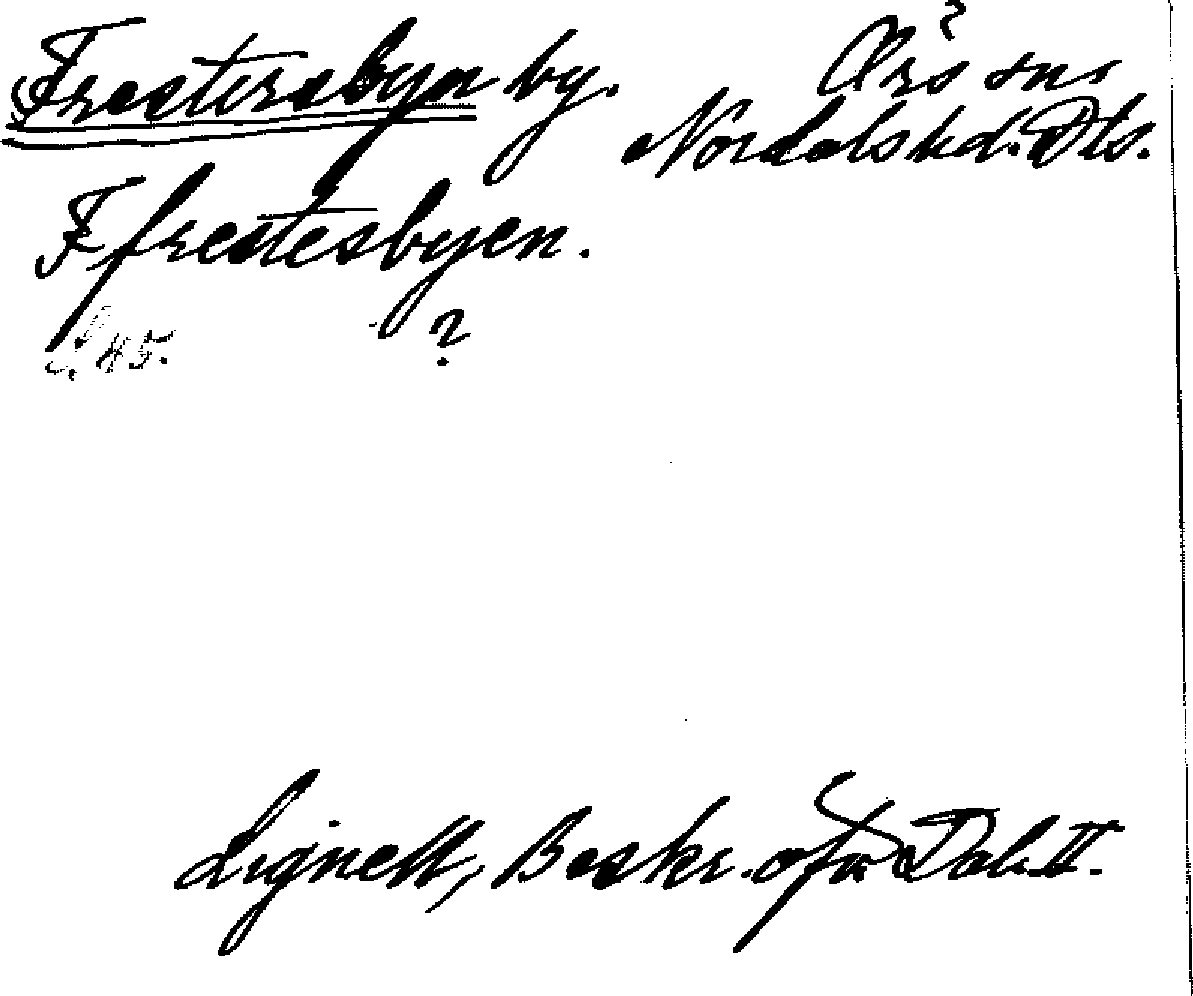 Frestersbyn by. Ärs sn.
Nordals hd. Dls.
F frestesbyen.
S. 45. ?
Lignell, Beskr. öfv. Dal. II.